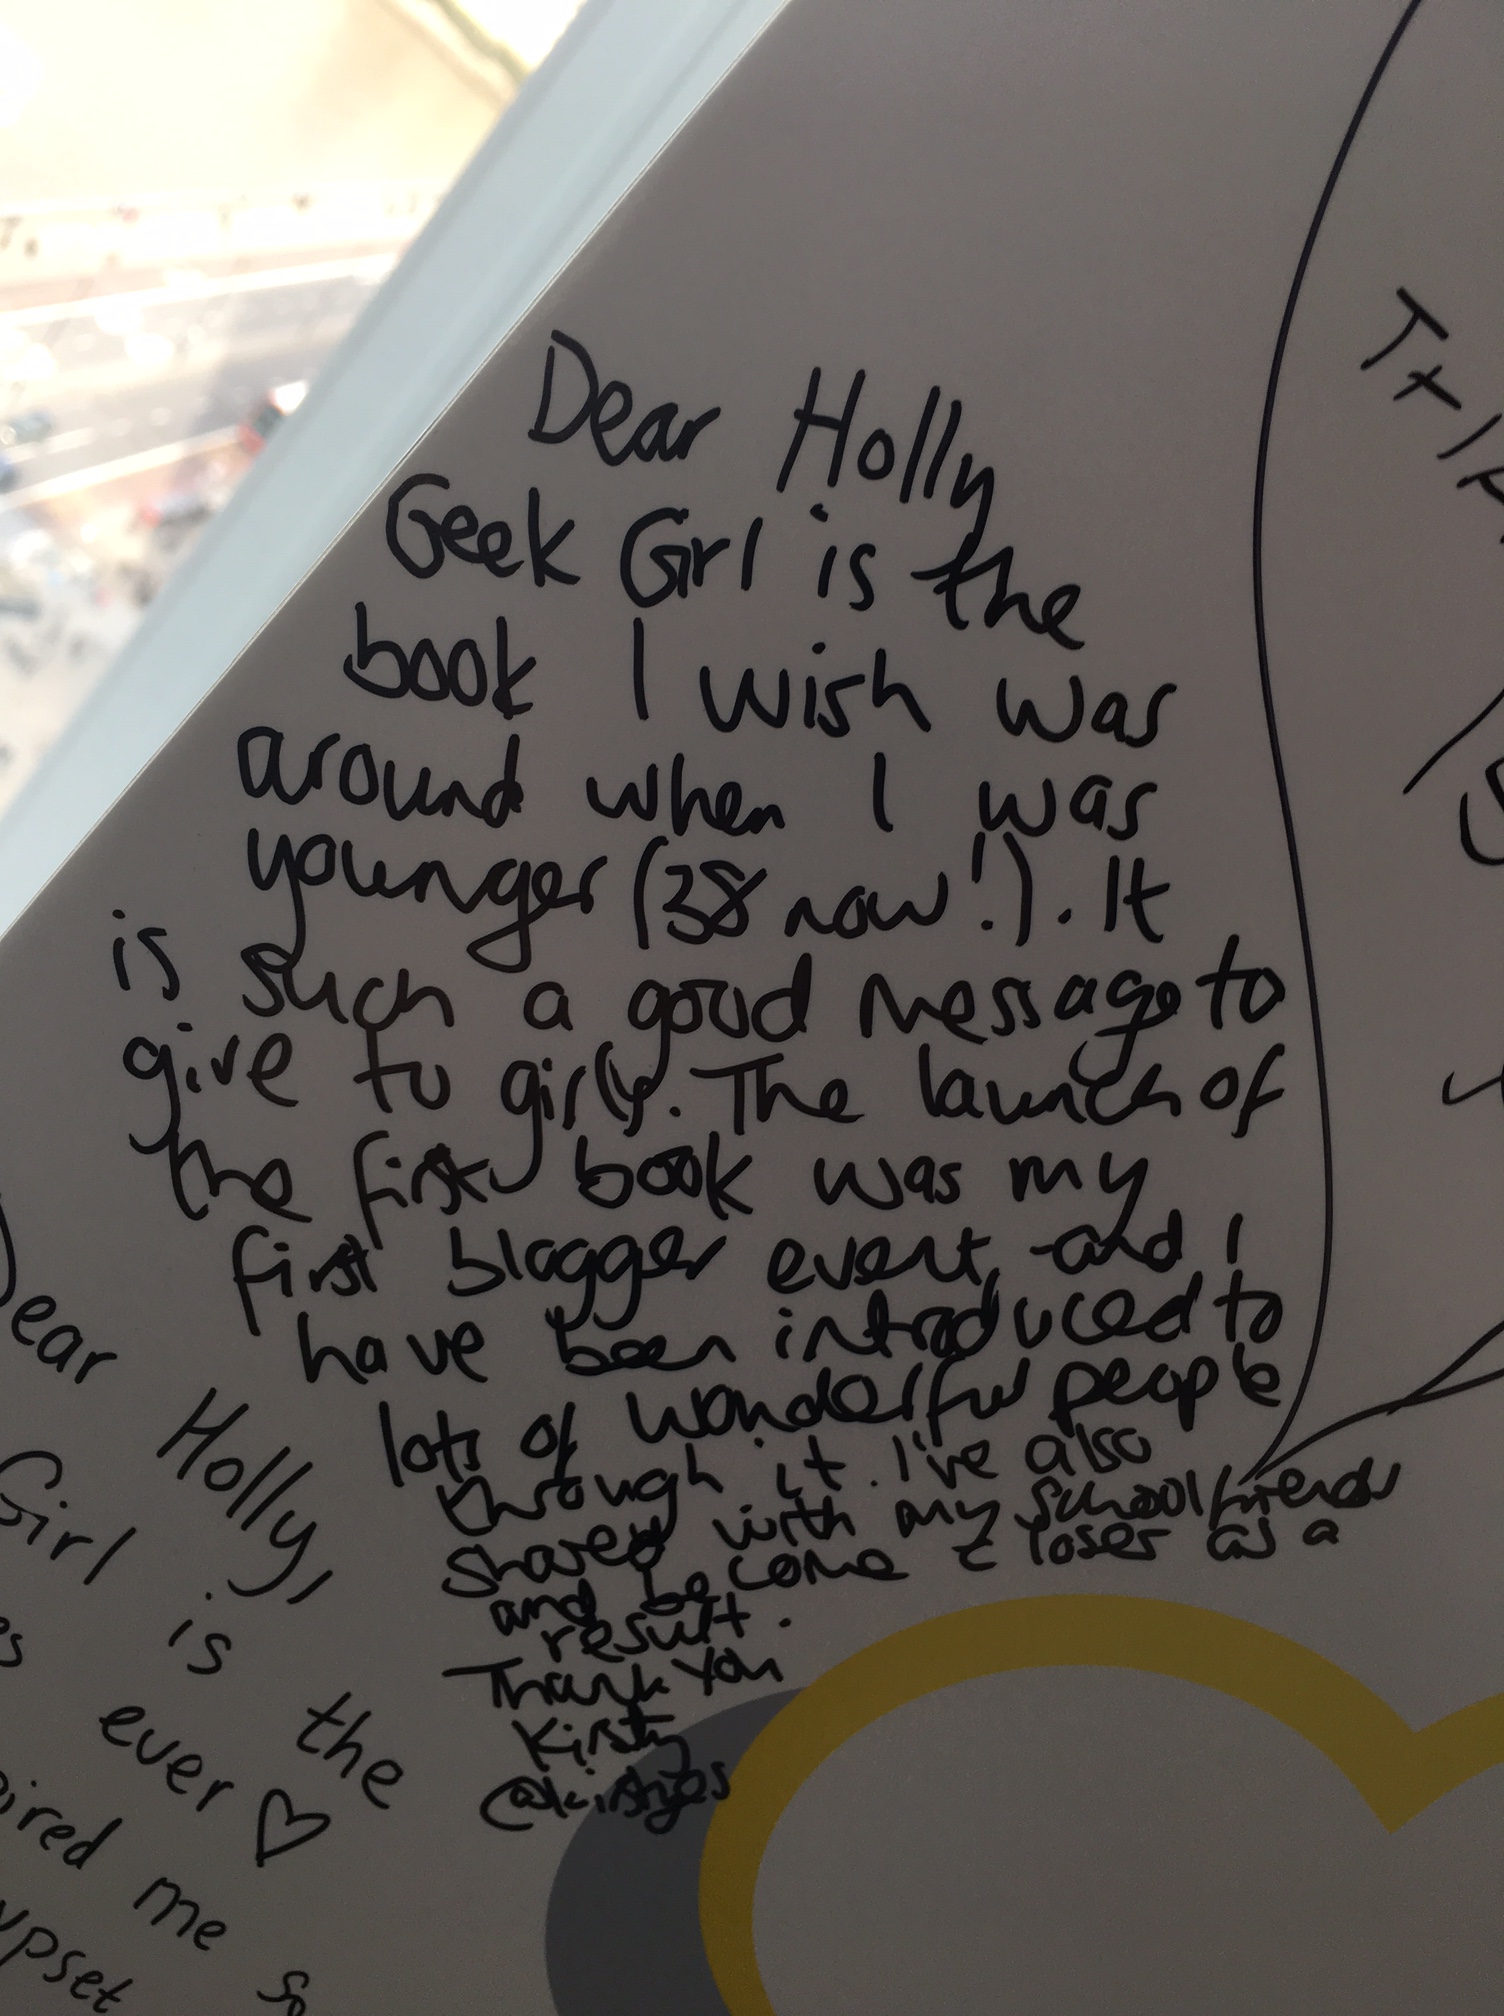 Dear Holly
Geek Girl is the
book I wish was
around when I was
younger (38 now!). It
is such a good message to
give to girls. The launch of
the first book was my
first blogger event, and I
have been introduced to
lots of wonderful people
through it. I've also
shared with my school friends
and become closer as a
result.
Thank you
Kirsty
Dear Holly,
Girl is the
ever ♡
me so
upset